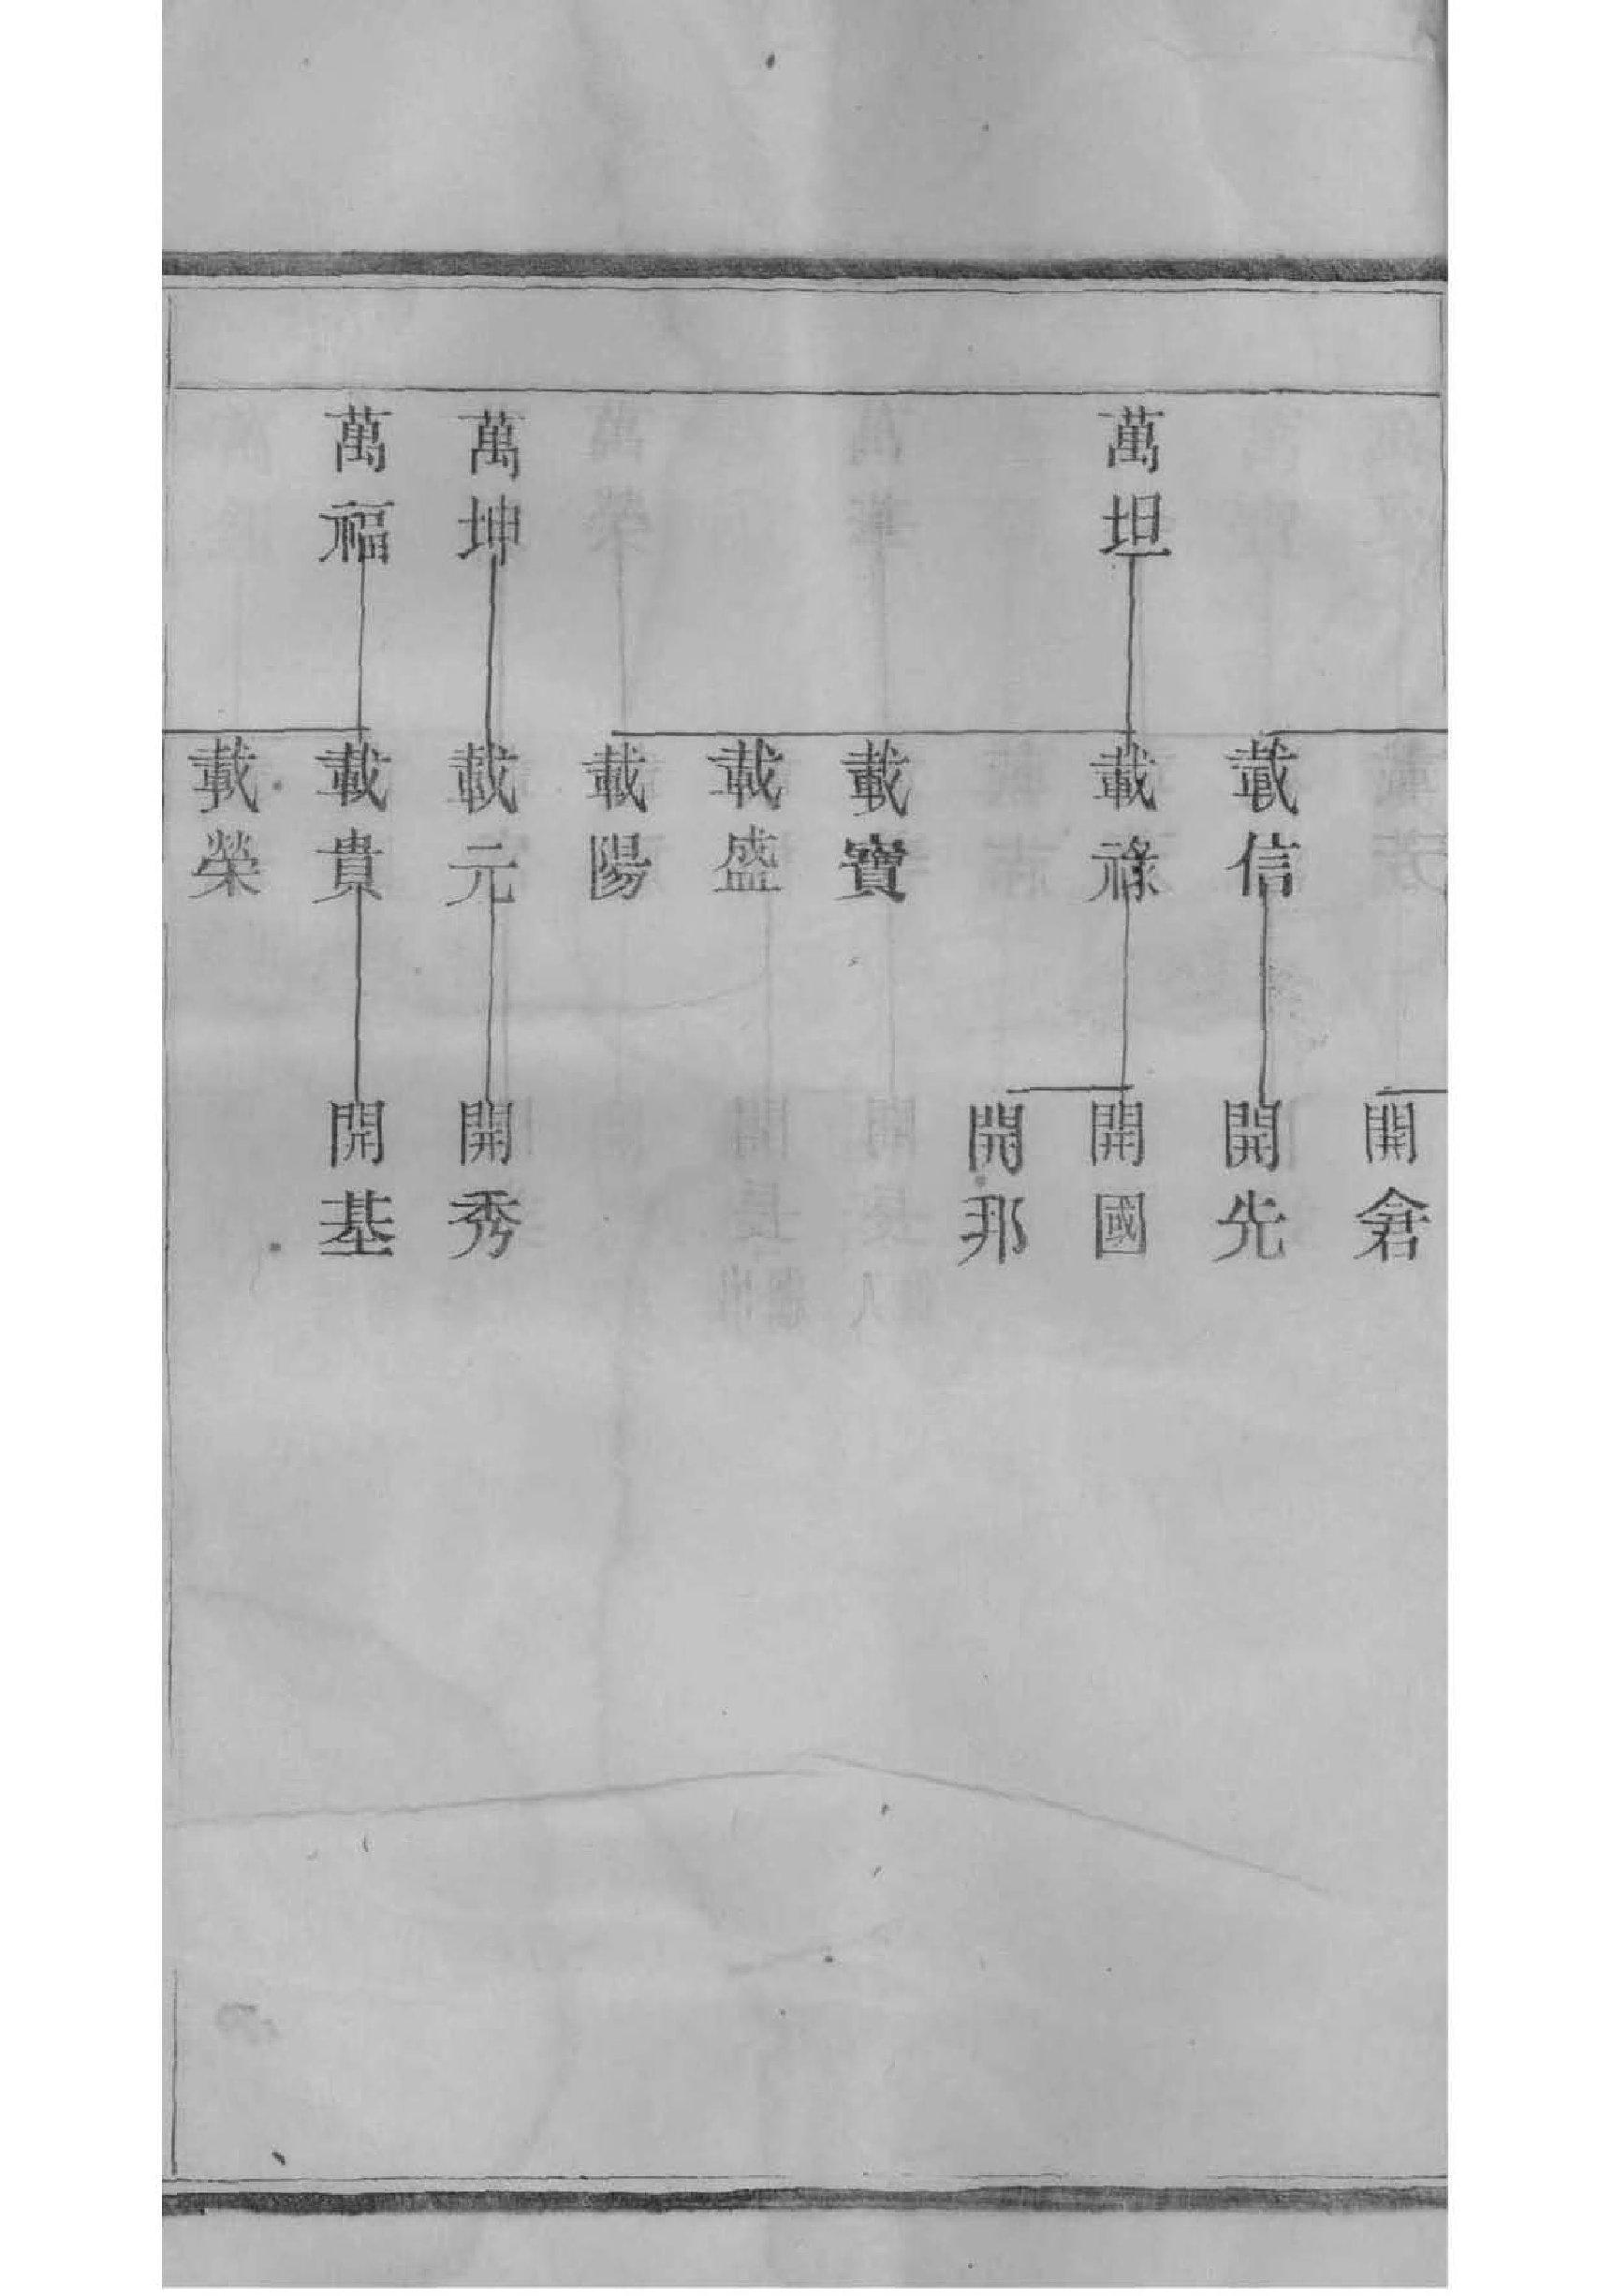 開倉
載信
開先
萬坦
載祿
開國
開邦
載寶
載盛
載陽
萬坤
載元
開秀
萬福
載貴
開基
載榮